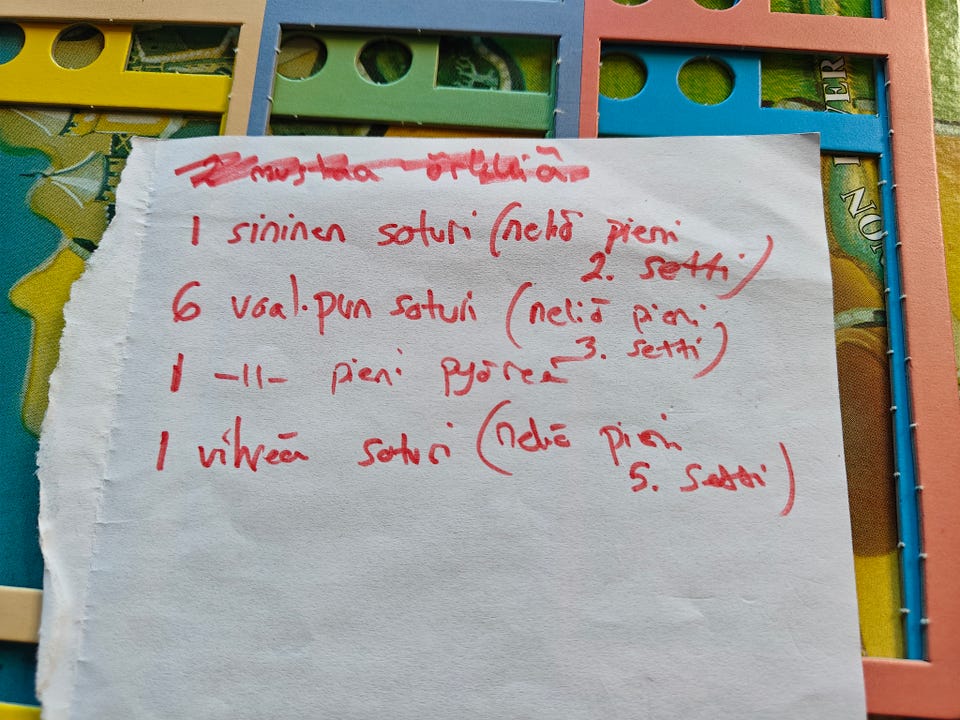 2 mustaa örkkiä
1 sininen soturi (neliö pieni
2. setti)
6 vaal.pun soturi (neliö pieni
3. setti)
1 -11- pieni pyöreä
1 vihreä soturi (neliö pieni
5. setti)
VER
NO